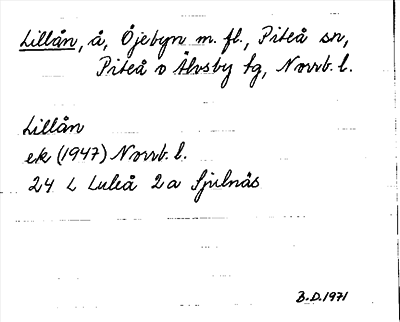 Lillån, å, Öjebyn m. fl., Piteå sn,
Piteå o Älvsby tg, Norrb. l.
Lillån
ek (1947) Norrb. l.
24 L Luleå 2a Sjulnäs
B.D.1971